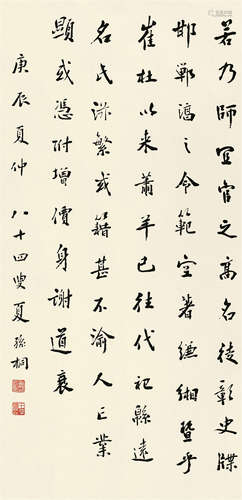 若乃師宜官之高名徒彰史牒
邯鄲淳之令範空著縑緗暨乎
崔杜以來蕭羊已往代祀緜遠
名氏滋繁或籍甚不渝人亡業
顯或憑附增價身謝道衰
庚辰夏仲 八十四叟夏孫桐